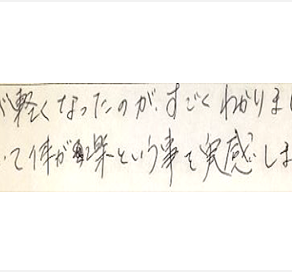 が軽くなったのが、すごくわかりまし
って体が楽という事を実感しま